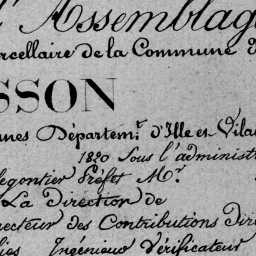 l'Assemblage
rcellaire de la Commune d
SSON
nes Départem.t d'Ille et Vilai
1820 Sous l'administr
legontier Préfet M.r
La Direction de
recteur des Contributions Dire
Ingénieur Vérificateur